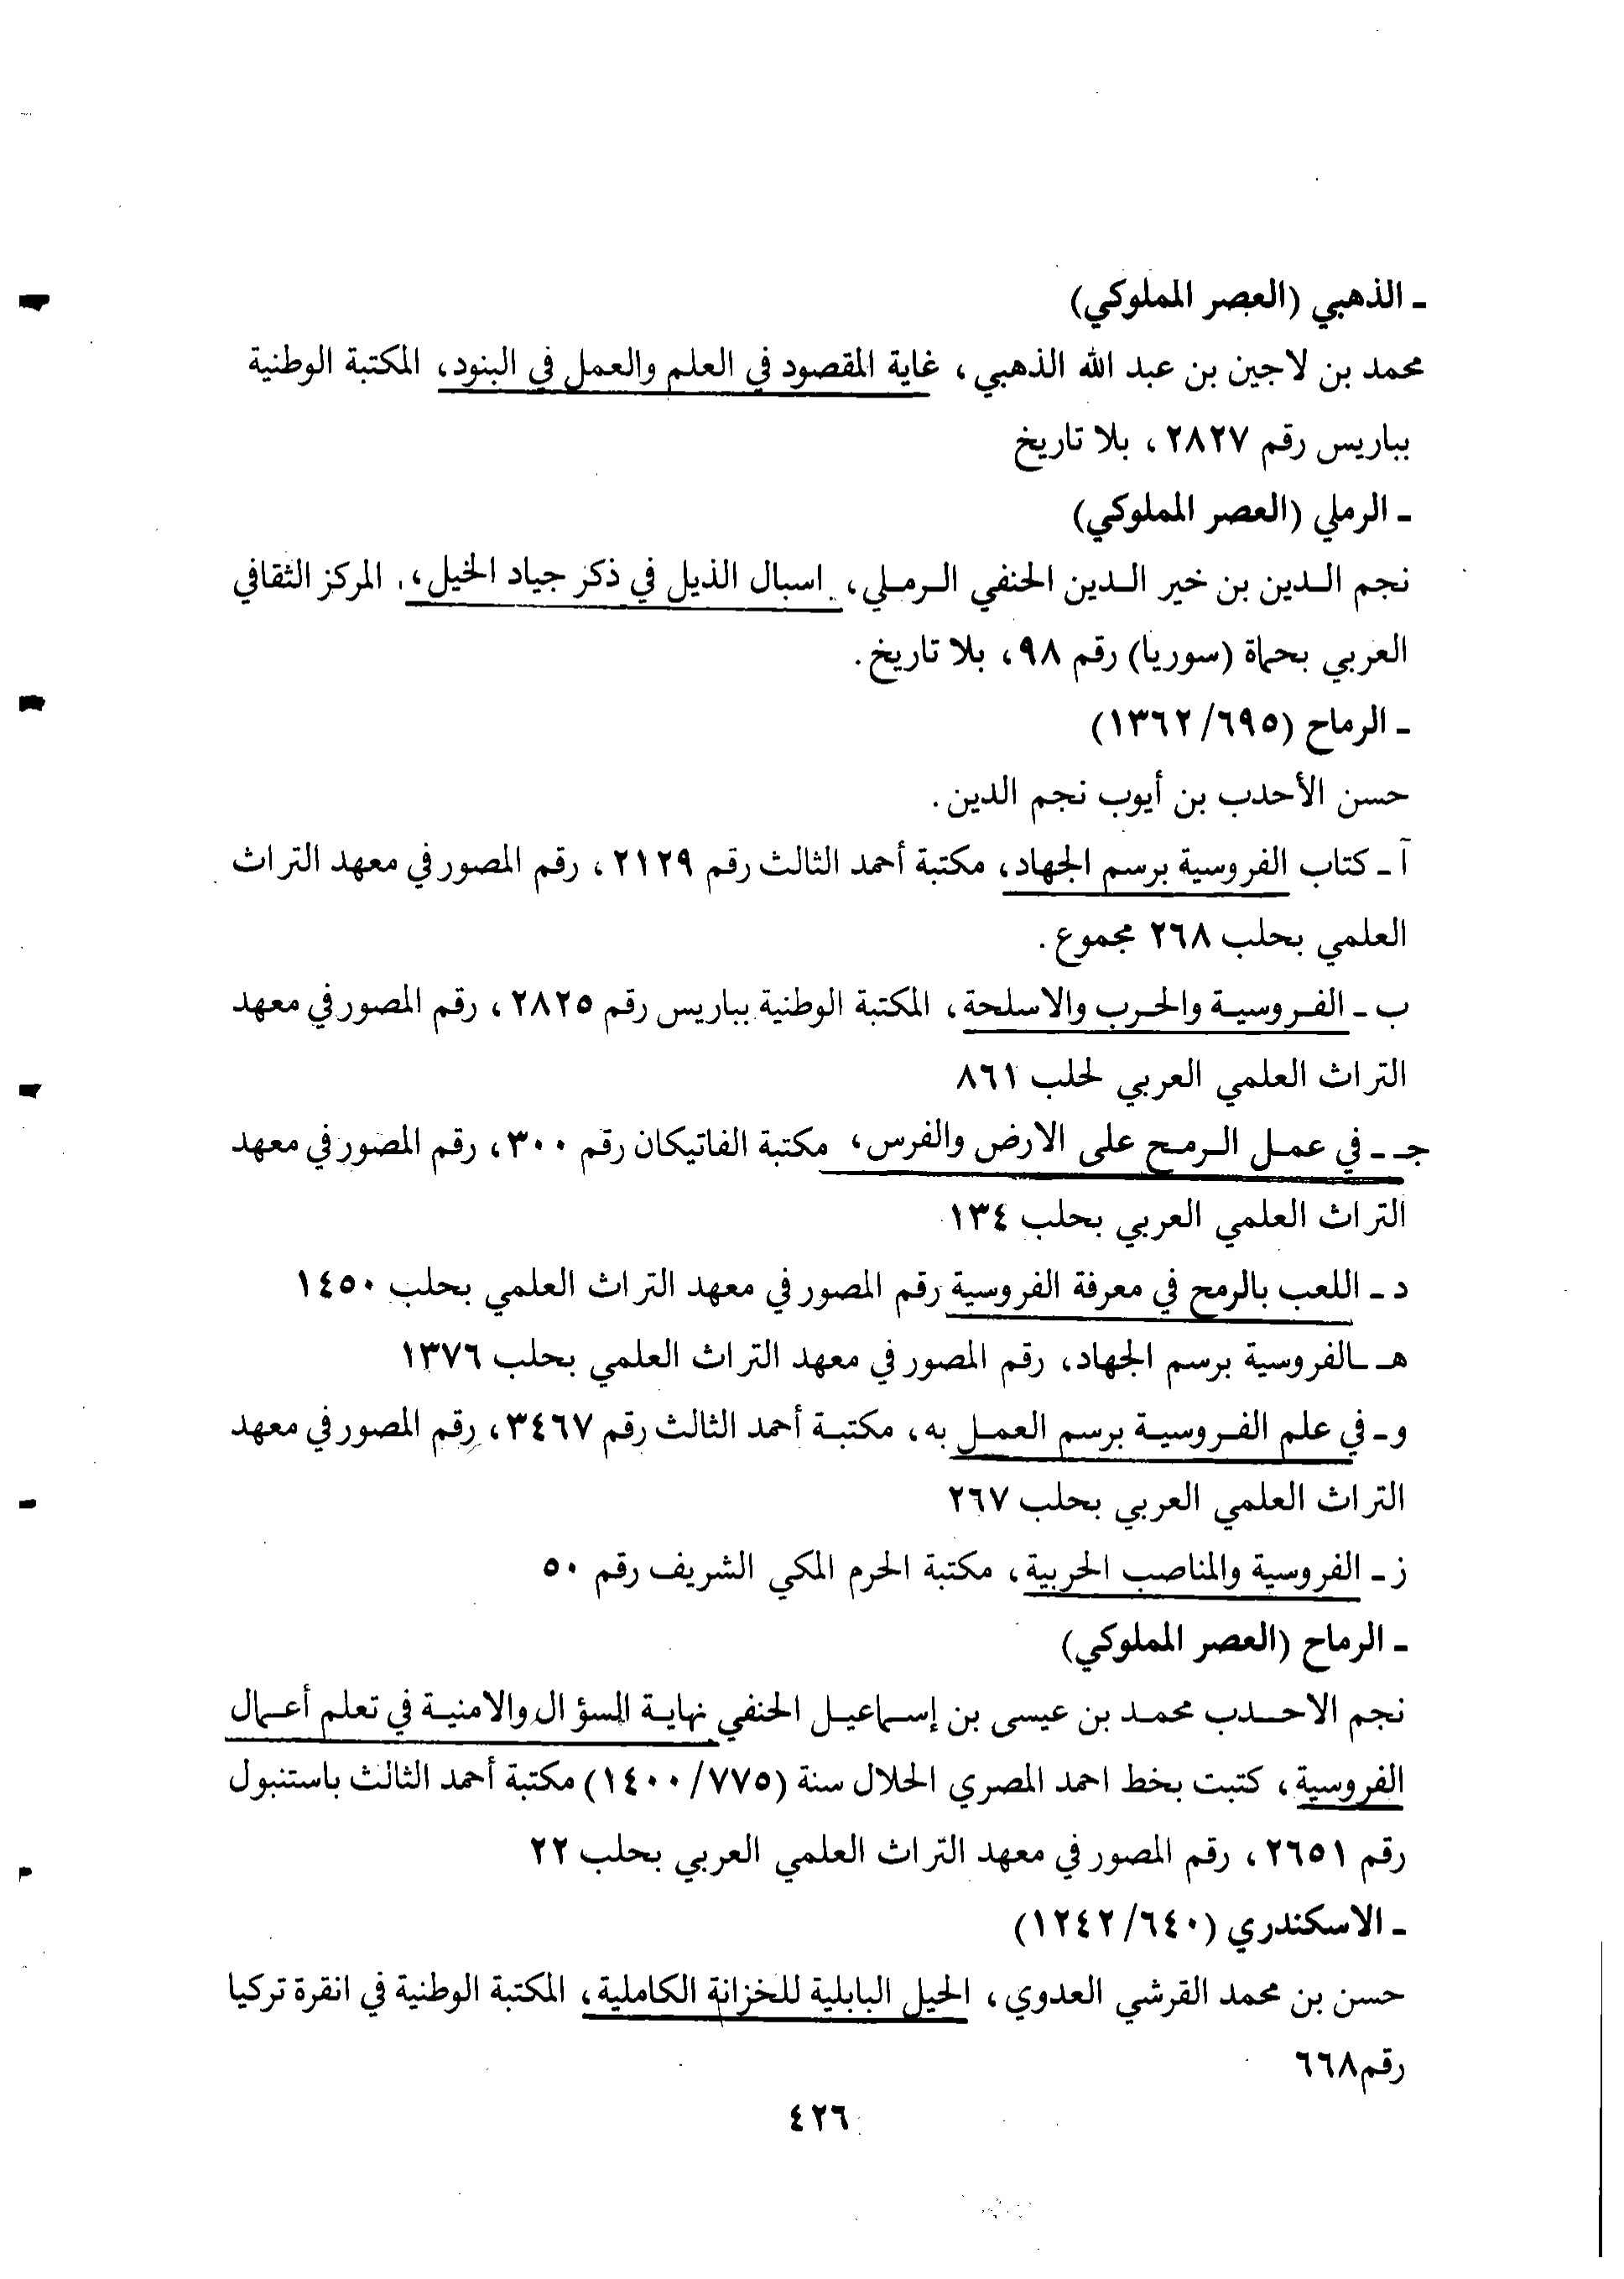 ـ الذهبي (العصر المملوكي)
محمد بن لاجين بن عبد الله الذهبي، غاية المقصود في العلم والعمل في البنود، المكتبة الوطنية
بباريس رقم ٢٨٢٧، بلا تاريخ
ـ الرملي (العصر المملوكي)
نجم الدين بن خير الدين الحنفي الرملي، اسبال الذيل في ذكر جياد الخيل، المركز الثقافي
العربي بحماة (سوريا) رقم ٩٨، بلا تاريخ.
ـ الرماح (٦٩٥/١٣٦٢)
حسن الأحدب بن أيوب نجم الدين.
آ ـ كتاب الفروسية برسم الجهاد، مكتبة أحمد الثالث رقم ٢١٢٩، رقم المصور في معهد التراث
العلمي بحلب ٢٦٨ مجموع.
ب ـ الفروسية والحرب والاسلحة، المكتبة الوطنية بباريس رقم ٢٨٢٥، رقم المصور في معهد
التراث العلمي العربي لحلب ٨٦١
جـ ـ في عمل الرمح على الارض والفرس، مكتبة الفاتيكان رقم ٣٠٠، رقم المصور في معهد
التراث العلمي العربي بحلب ١٣٤
د ـ اللعب بالرمح في معرفة الفروسية رقم المصور في معهد التراث العلمي بحلب ١٤٥٠
هـ ـالفروسية برسم الجهاد، رقم المصور في معهد التراث العلمي بحلب ١٣٧٦
و ـ في علم الفروسية برسم العمل به، مكتبة أحمد الثالث رقم ٣٤٦٧، رقم المصور في معهد
التراث العلمي العربي بحلب ٢٦٧
ز ـ الفروسية والمناصب الحربية، مكتبة الحرم المكي الشريف رقم ٥٠
ـ الرماح (العصر المملوكي)
نجم الاحدب محمد بن عيسى بن إسماعيل الحنفي نهاية السؤال والامنية في تعلم أعمال
الفروسية، كتبت بخط احمد المصري الحلال سنة (٧٧٥/١٤٠٠) مكتبة أحمد الثالث باستنبول
رقم ٢٦٥١، رقم المصور في معهد التراث العلمي العربي بحلب ٢٢
ـ الاسكندري (٦٤٠/١٢٤٢)
حسن بن محمد القرشي العدوي، الحيل البابلية للخزانة الكاملية، المكتبة الوطنية في انقرة تركيا
رقم٦٦٨
٤٢٦